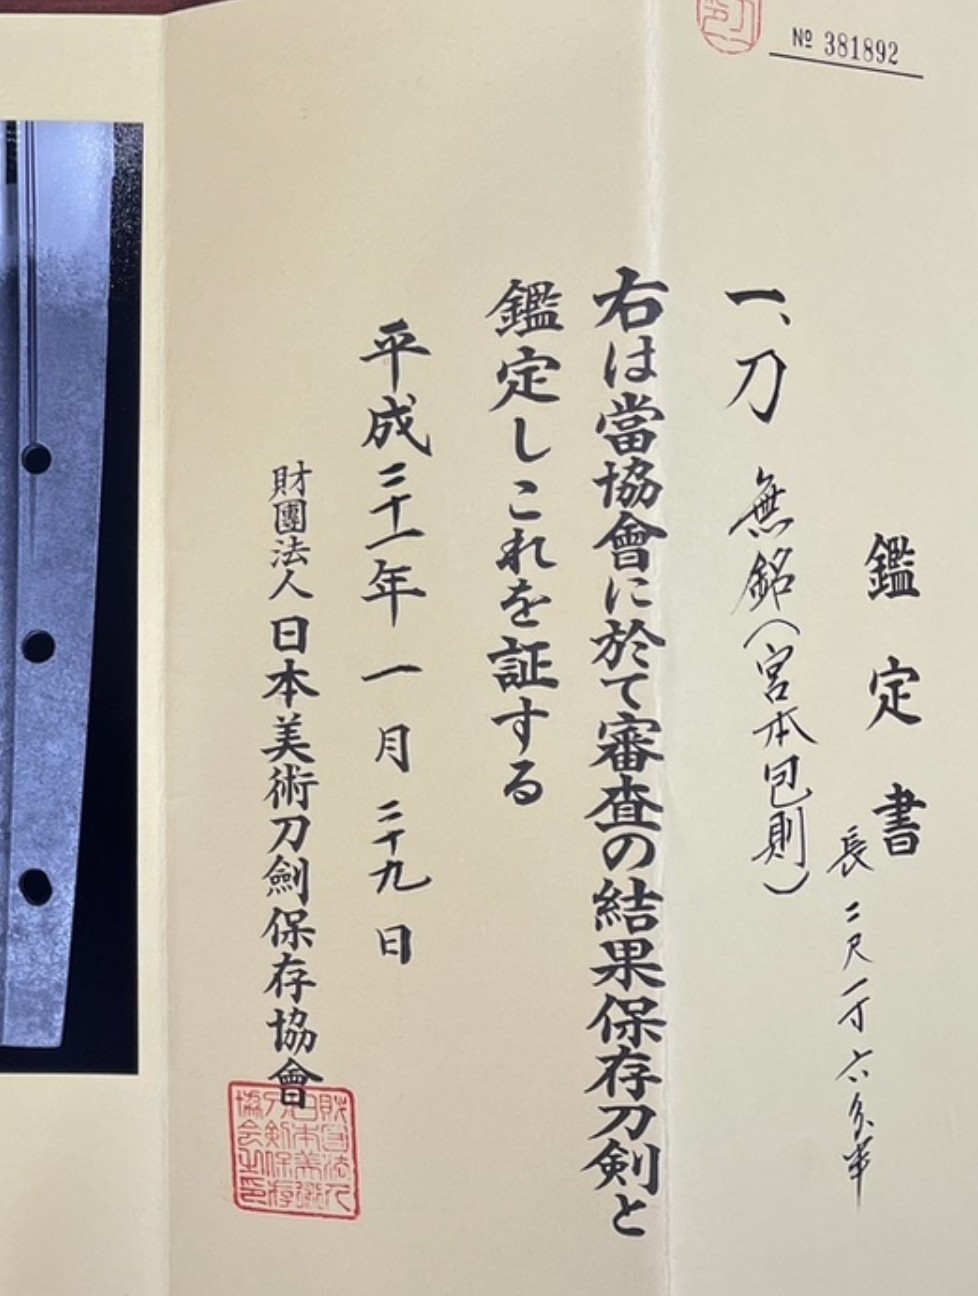 № 381892
鑑定書
長二尺一寸六分半
一、刀 無銘(宮本包則)
右は當協會に於て審査の結果保存刀剣と
鑑定しこれを証する
平成二十一年一月二十九日
財團法人日本美術刀劍保存協會
財団法人
日本美術
刀剣保存
協会之印